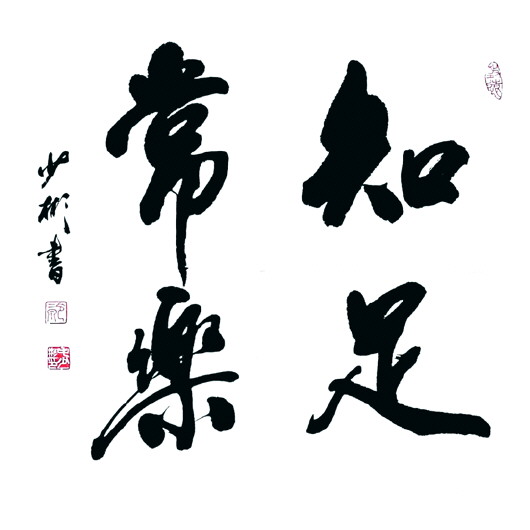 知足
常樂
少彬書